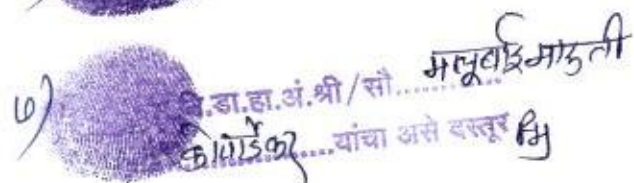 ७) नि.डा.हा.अं.श्री/सौ........ मलूबाई मारुती
कोपार्डेकर.....यांचा असे दस्तूर